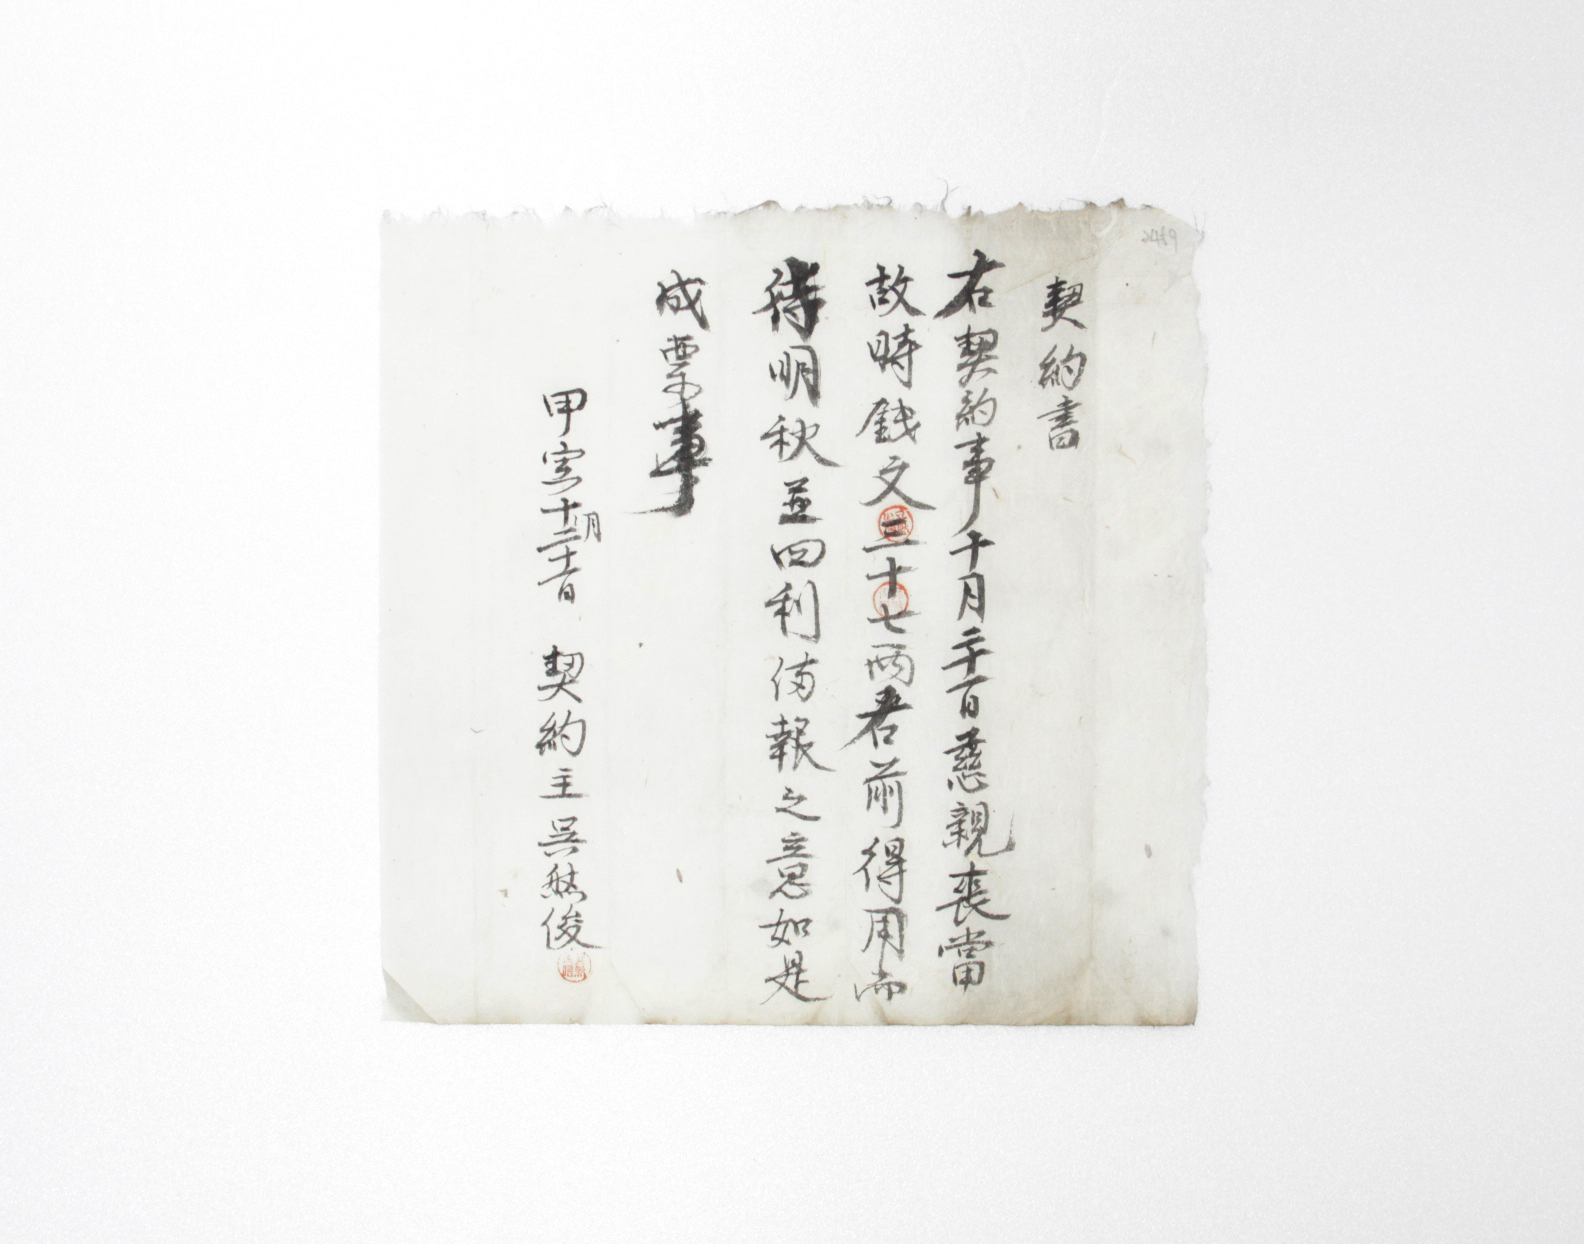 契約書
右契約事十月二十一日慈親喪當
故時錢文三十七両君前得用而
待明秋並四利備報之意如是
成票事
甲寅十二月二十一日 契約主 吳 俊
2469